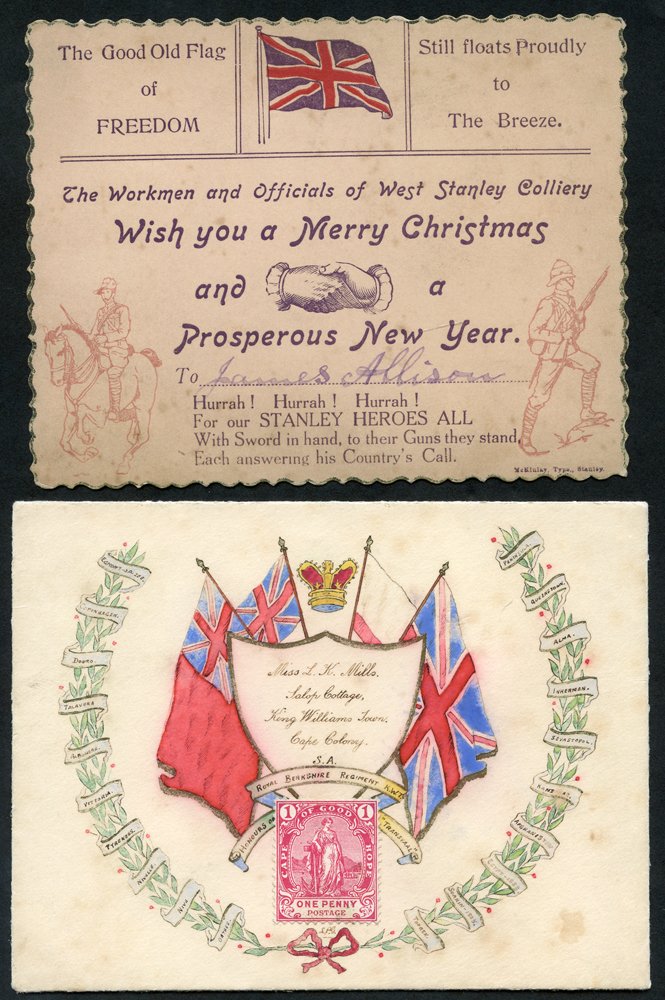 The Good Old Flag
of
FREEDOM
Still floats Proudly
to
The Breeze.
The Workmen and Officials of West Stanley Colliery
Wish you a Merry Christmas
and a
Prosperous New Year.
To James Allison
Hurrah! Hurrah! Hurrah!
For our STANLEY HEROES ALL
With Sword in hand, to their Guns they stand,
Each answering his Country's Call.
McKinlay, Typo., Stanley.
COPENHAGEN.
DOURO.
TALAVERA
ALBUHERA.
VITTORIA.
PYRENEES.
NIVELLE
NIVE
PENINSULA.
QUEENSTOWN.
ALMA.
INKERMAN.
SEVASTOPOL.
Miss L. K. Mills.
Salop Cottage,
King Williams Town.
Cape Colony.
S.A.
ROYAL BERKSHIRE REGIMENT K.W.T.
HONOURS OF
"TRANSVAAL"
1 1
CAPE OF GOOD HOPE
ONE PENNY
POSTAGE